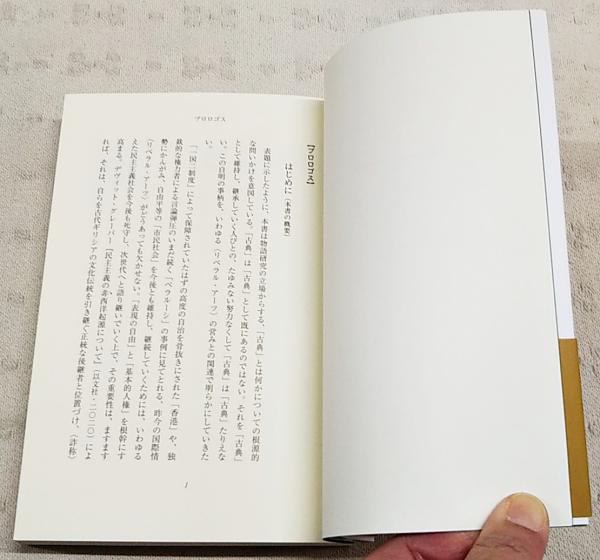 プロロゴス
【プロロゴス】
はじめに（本書の概要）
表題に示したように、本書は物語研究の立場からする、「古典」とは何かについての根源的
な問いかけを意図している。「古典」は「古典」として既にあるのではない。それを「古典」
として維持し、継承していく人びとの、たゆみない努力なくして「古典」は「古典」たりえな
い。この自明の事柄を、いわゆる〈リベラル・アーツ〉の営みとの関連で明らかにしていきた
い。
「一国二制度」によって保障されていたはずの高度の自治を骨抜きにされた「香港」や、独
裁的な権力者による言論弾圧のいまだ続く「ベラルーシ」の事例に見てとれる、昨今の国際情
勢にかんがみ、自由平等の「市民社会」を今後とも維持し、継続していくためには、いわゆる
〈リベラル・アーツ〉がどうあっても欠かせない。「表現の自由」と「基本的人権」を根幹にす
えた民主主義社会を今後も死守し、次世代へと語り継いでいく上で、その重要性は、ますます
高まる。デヴィット・グレーバー『民主主義の非西洋起源について』（以文社・二〇二〇）によ
れば、それは、自らを古代ギリシアの文化伝統を引き継ぐ正統な後継者と位置づけ、（詐称）
1